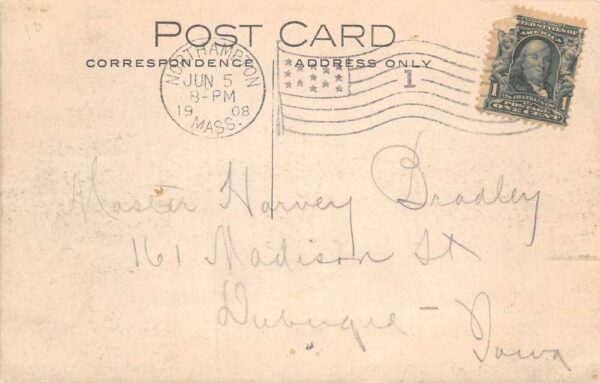 10
POST CARD
CORRESPONDENCE ADDRESS ONLY
NORTHAMPTON
JUN 5
8-PM
1908
MASS.
1
UNITED STATES OF
AMERICA
1 1
POSTAGE
ONE CENT
Master Harvey Bradley
161 Madison St
Dubuque
Iowa